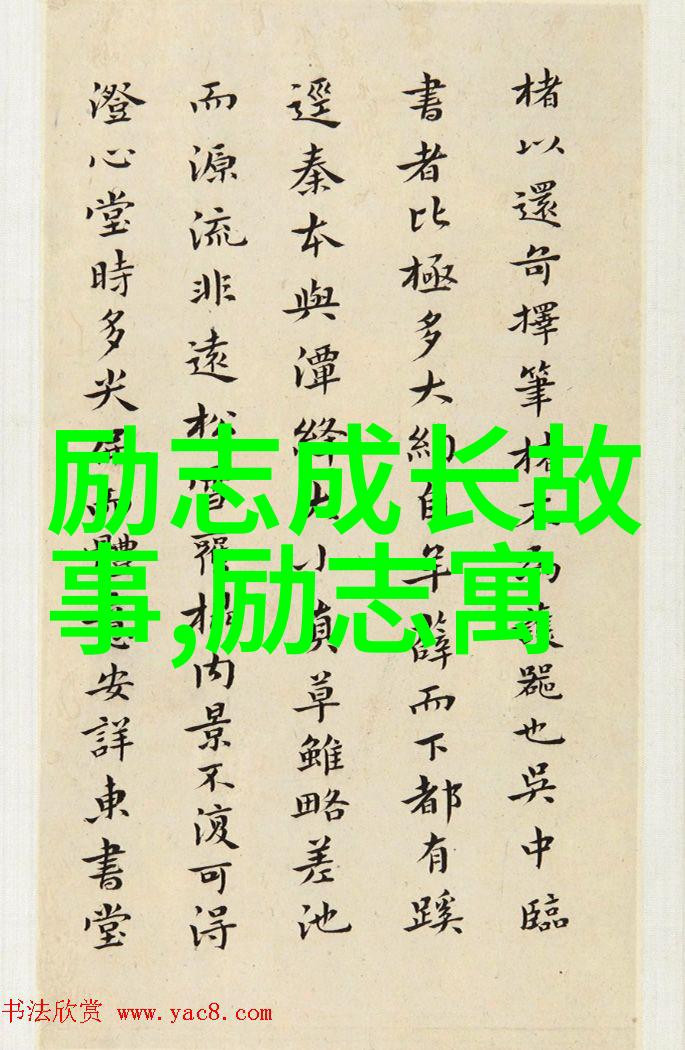 楮以還奇擇筆器也吳中臨
書者比極多大約自羊薛而下都有蹊
逕秦本與潭絳大小真草雖略差池
而源流非遠松雪內景不復可得
澄心堂時多尖體安詳東書堂
励志成长故
事,励志寓
书法欣赏 www.yac8.com